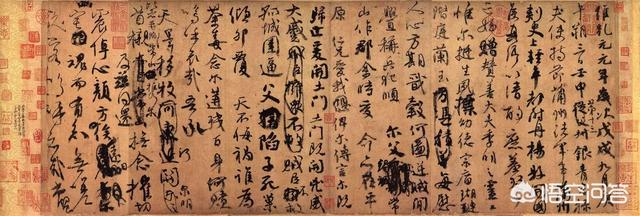 維乾元元年歲次戊戌九月庚
午朔三日壬申第十三叔銀青光祿
夫使持節蒲州諸軍事蒲州
刺史上輕車都尉丹楊縣開國
侯真卿以清酌庶羞祭于
亡姪贈贊善大夫季明之靈曰
惟爾挺生夙標幼德宗廟瑚璉
階庭蘭玉每慰
人心方期戩穀何圖逆賊閒
釁稱兵犯順爾父竭誠
常山作郡余時受命亦在平
原仁兄愛我俾爾傳言爾既
歸止爰開土門土門既開凶威
大蹙賊臣不救
孤城圍逼父陷子死巢
傾卵覆天不悔禍誰為
荼毒念爾遘殘百身何贖
嗚乎哀哉吾承
天澤移牧河關泉明
比者再陷常山攜爾
首櫬及茲同還撫念摧切
震悼心顏方俟遠日
卜爾幽宅魂而有知無嗟
久客嗚呼哀哉尚饗
悟空问答